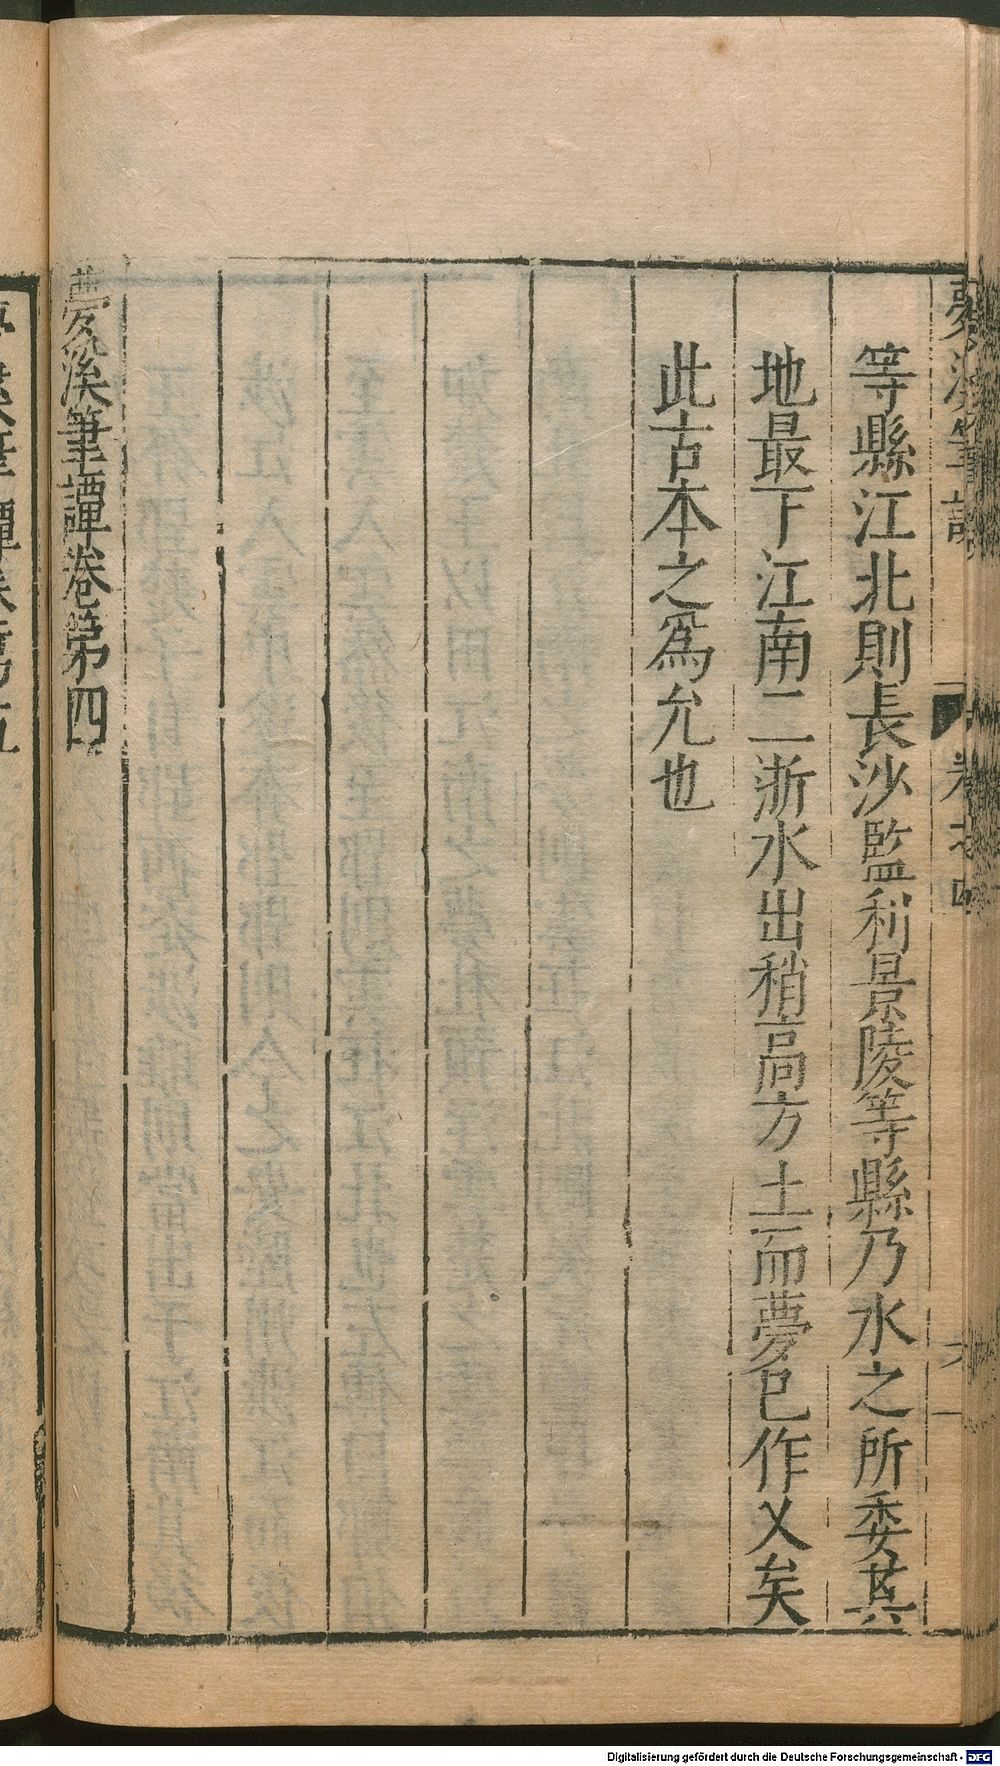 夢溪筆談
卷之四
六
等縣江北則長沙監利景陵等縣乃水之所委其
地最下江南二浙水出稍高方土而夢已作乂矣
此古本之爲允也
夢溪筆譚卷第四
Digitalisierung gefördert durch die Deutsche Forschungsgemeinschaft - DFG